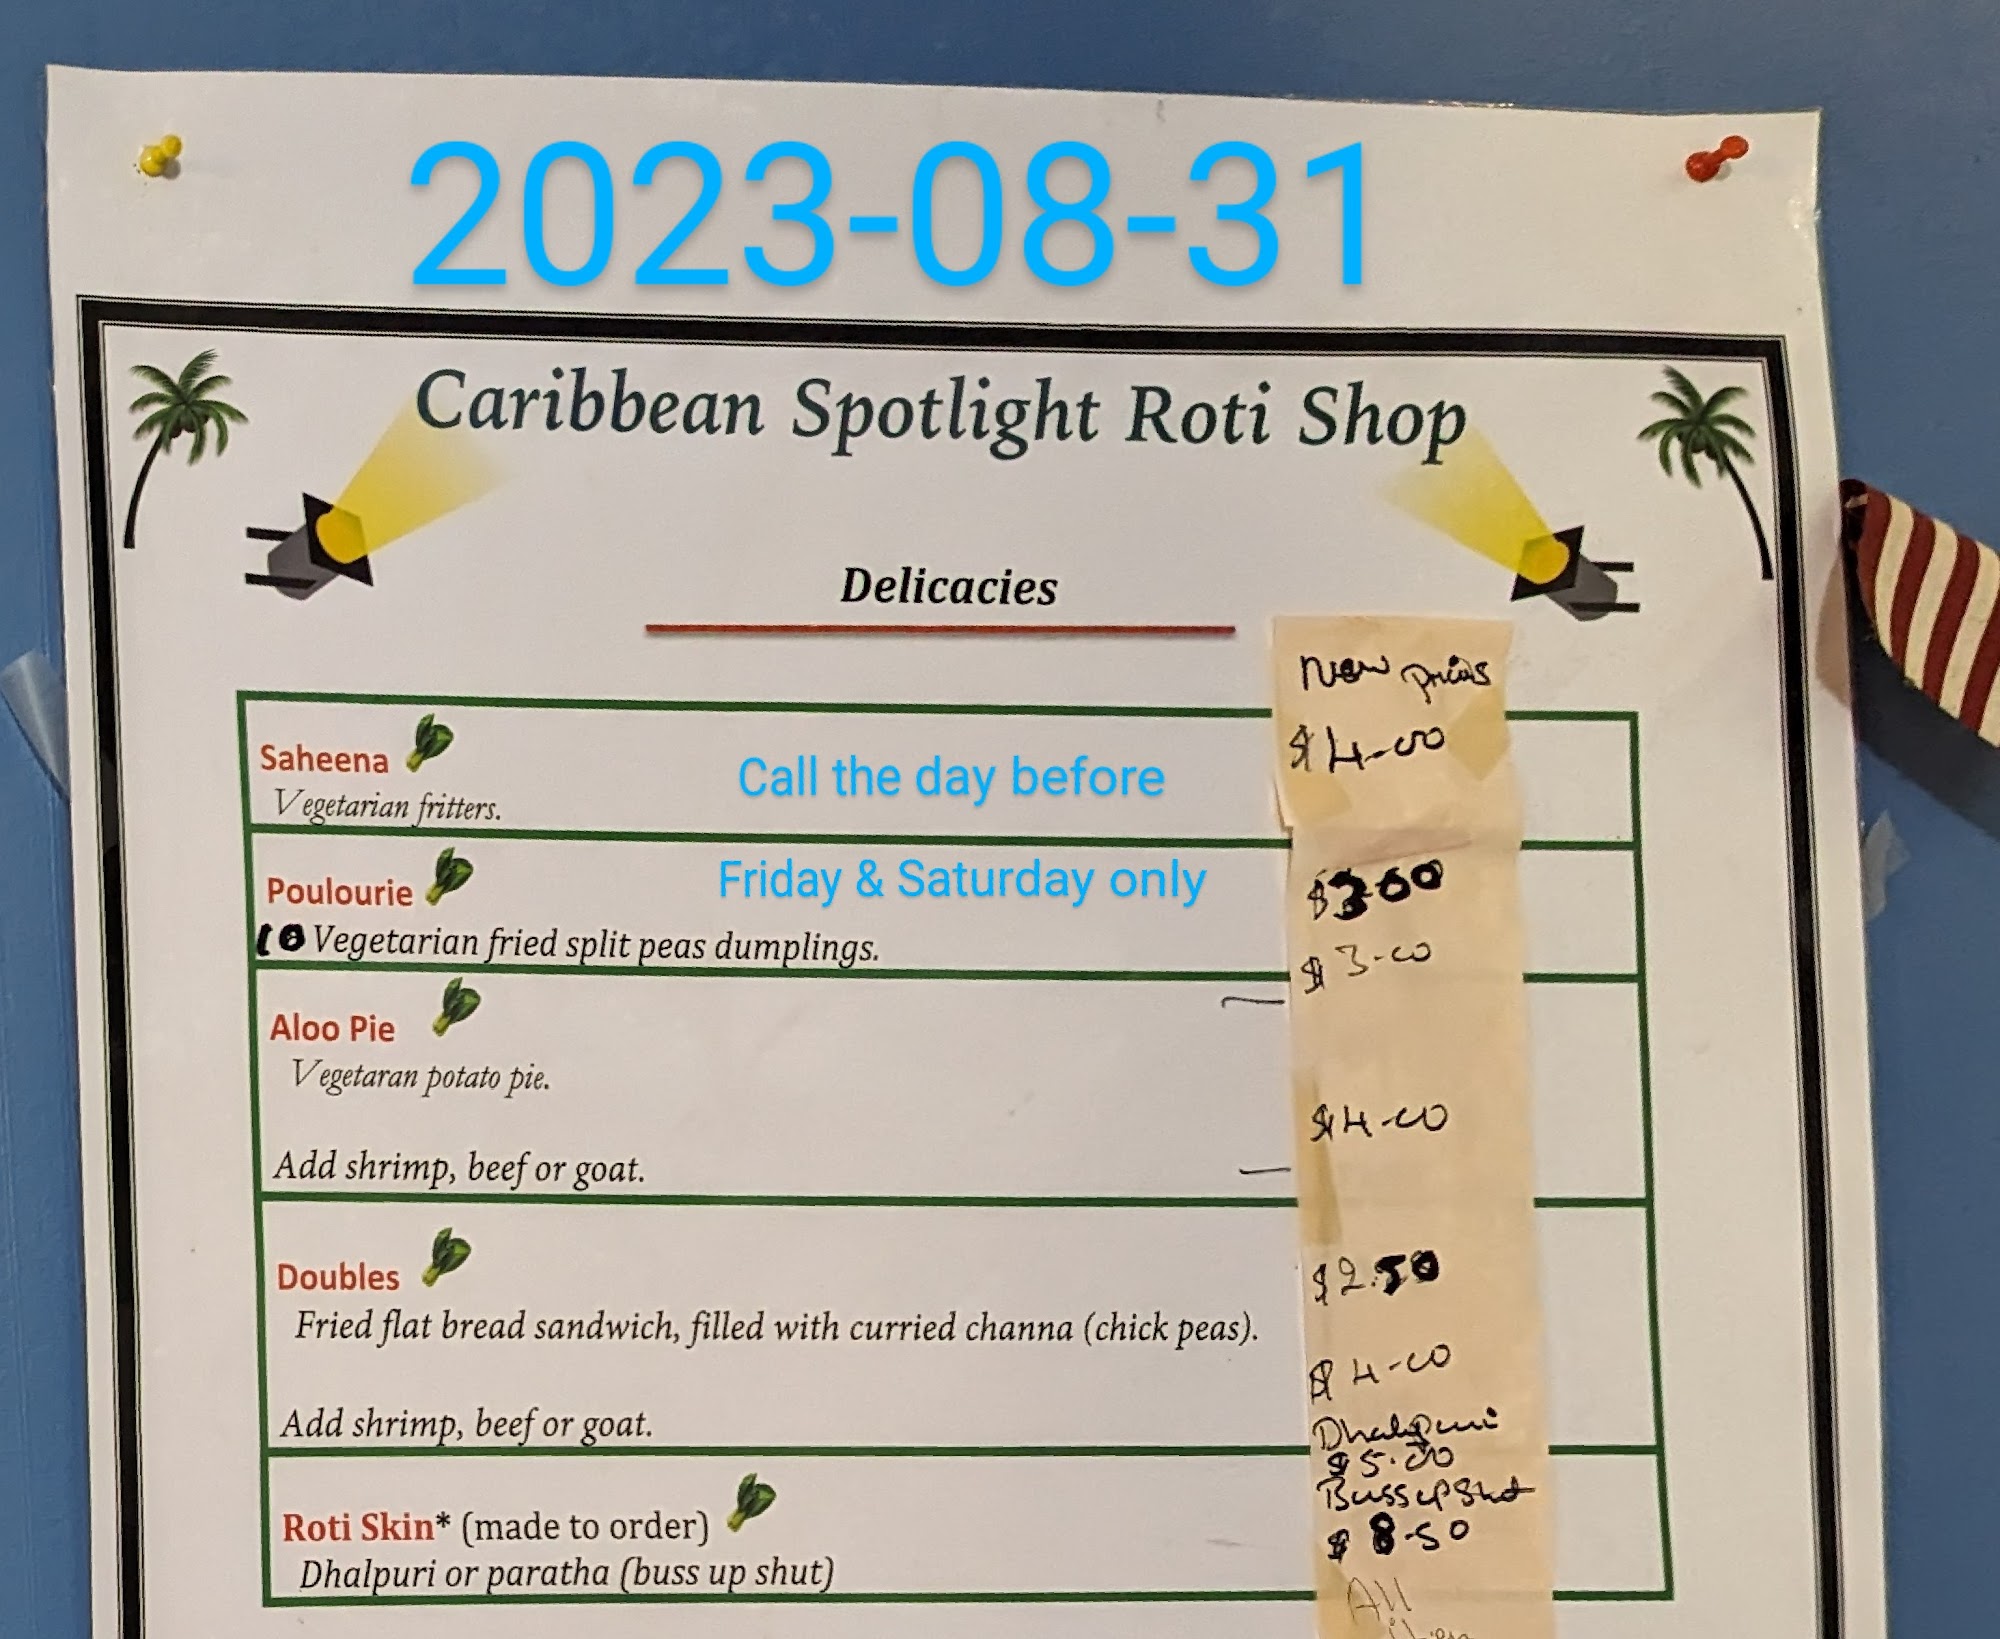 2023-08-31
Caribbean Spotlight Roti Shop
Delicacies
New prices
Saheena
Call the day before
$4-00
Vegetarian fritters.
Poulourie
Friday & Saturday only
$300
10 Vegetarian fried split peas dumplings.
$3-00
Aloo Pie
Vegetaran potato pie.
$4-00
Add shrimp, beef or goat.
Doubles
$2.50
Fried flat bread sandwich, filled with curried channa (chick peas).
$4-00
Add shrimp, beef or goat.
Dhalpuri
$5.00
Bussupshut
Roti Skin* (made to order)
$8-50
Dhalpuri or paratha (buss up shut)
All